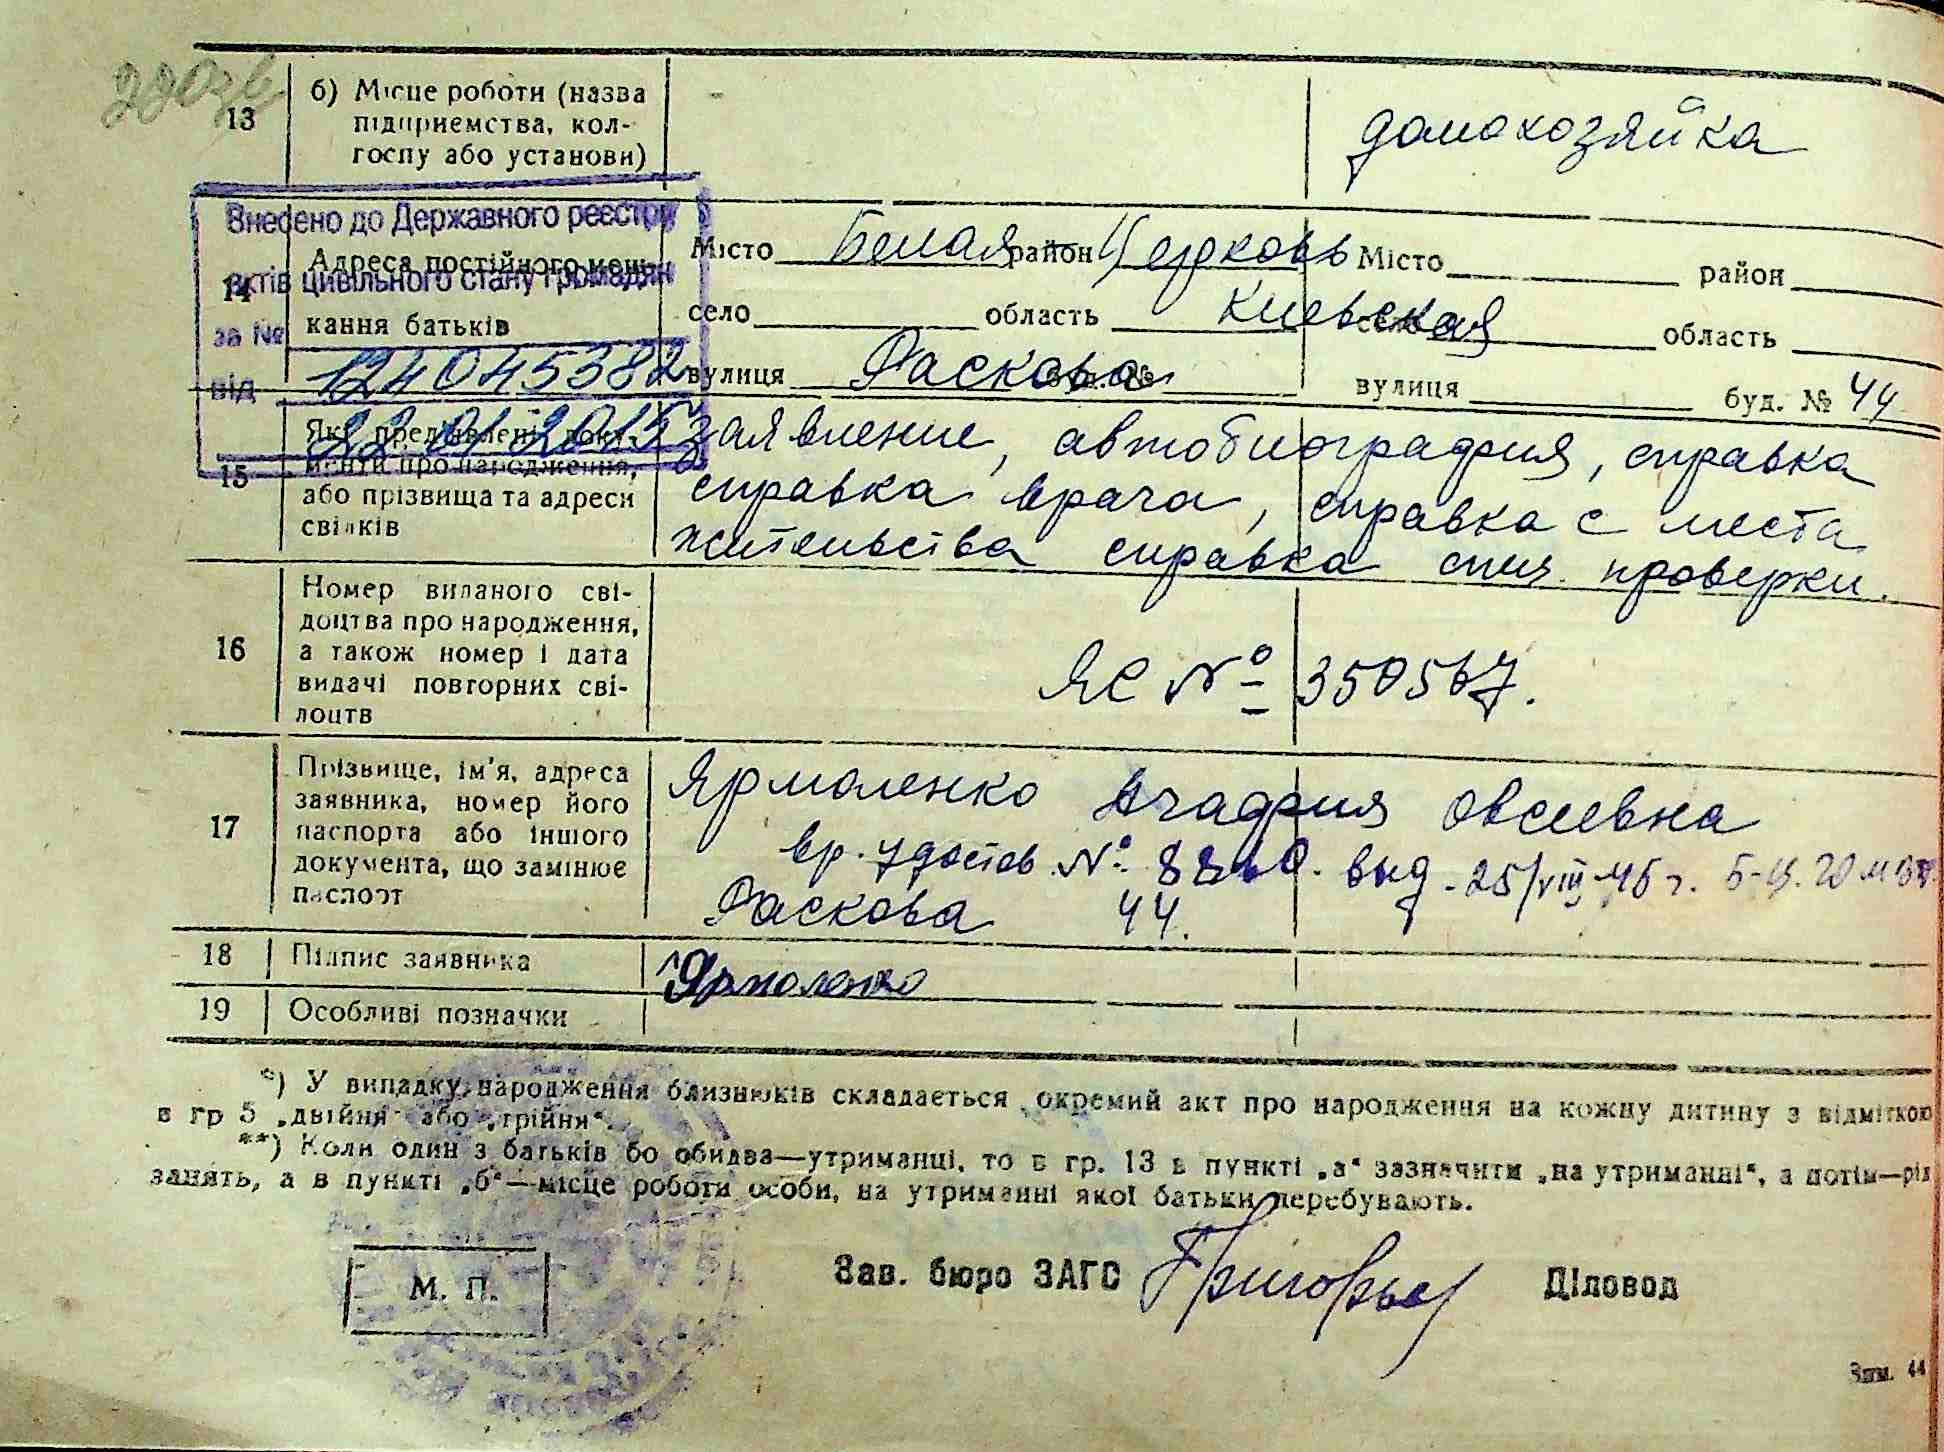 13 б) Місце роботи (назва підприємства, колгоспу або установи) домохозяйка
Внесено до Державного реєстру
актів цивільного стану громадян
за № 124045382
від 22 01 2015
14 Адреса постійного мешкання батьків
Місто Белая Церковь район Місто район
село область Киевская село область
вулиця Раскова буд. № вулиця буд. № 44
15 Які пред'явлені документи про народження, або прізвища та адреси свідків
заявление, автобиография, справка
справка врача, справка с места
жительства справка спец. проверки.
16 Номер виданого свідоцтва про народження, а також номер і дата видачі повторних свідоцтв
ЯС № 350567.
17 Прізвище, ім'я, адреса заявника, номер його паспорта або іншого документа, що замінює паспорт
Ярмоленко Агафия Овсиевна
вр. удостов. № выд. 25/VIII-46 г.
Раскова 44.
18 Підпис заявника Ярмоленко
19 Особливі позначки
*) У випадку народження близнюків складається окремий акт про народження на кожну дитину з відміткою
в гр 5 „двійня" або „трійня".
**) Коли один з батьків бо обидва—утриманці, то в гр. 13 в пункті „а" зазначити „на утриманні", а потім—рід
занять, а в пункті „б"—місце роботи особи, на утриманні якої батьки перебувають.
М. П.
Зав. бюро ЗАГС Діловод
Зам. 44